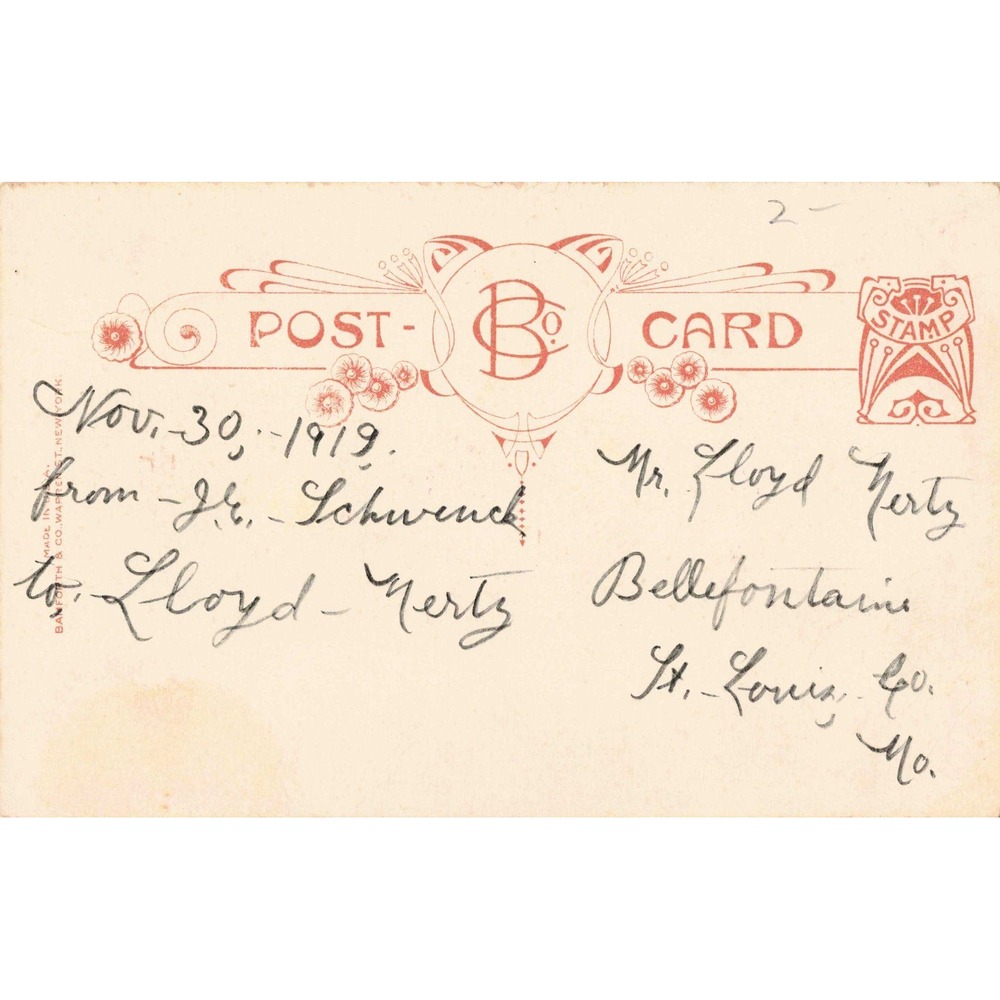 2-
POST-CARD
B Co.
STAMP
Nov. -30, -1919.
from - J.E. - Schwenck
to. Lloyd - Nertz
Mr. Lloyd Nertz
Bellefontaine
St. - Louis, Co.
Mo.
MADE IN
BAMFORTH & CO. WARREN ST. NEW YORK